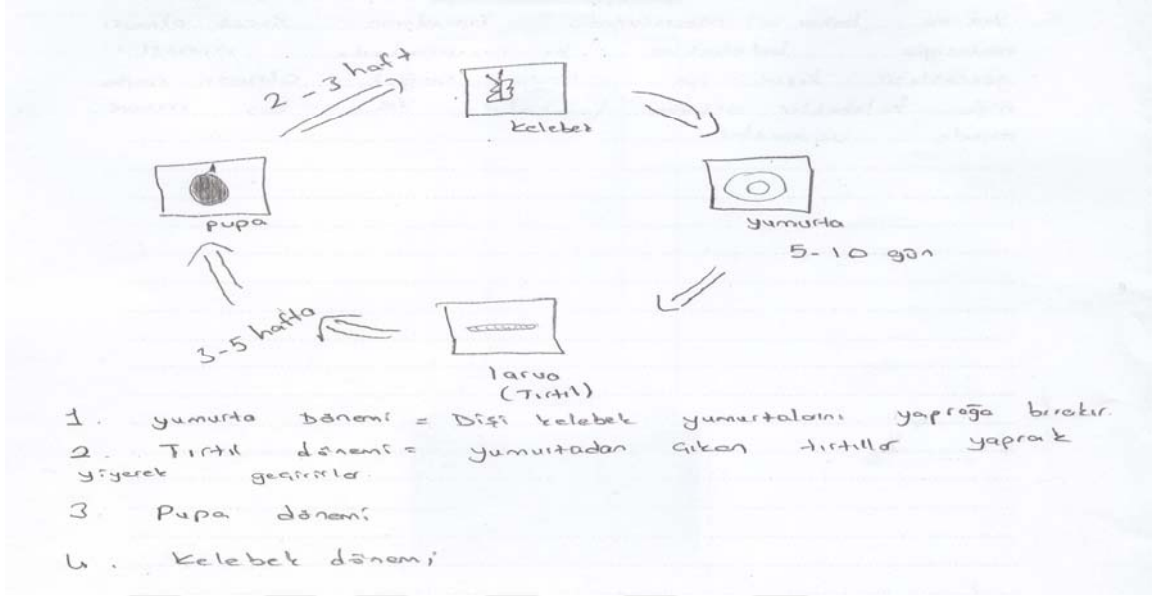 2 3 haft
kelebek
pupa
yumurta
5-10 gün
3-5 hafta
larva
(Tırtıl)
1. yumurta Dönemi = Dişi kelebek yumurtalarını yaprağa bırakır.
2. Tırtıl dönemi = yumurtadan çıkan tırtıllar yaprak
yiyerek geçirirler.
3. Pupa dönemi
4. Kelebek dönemi